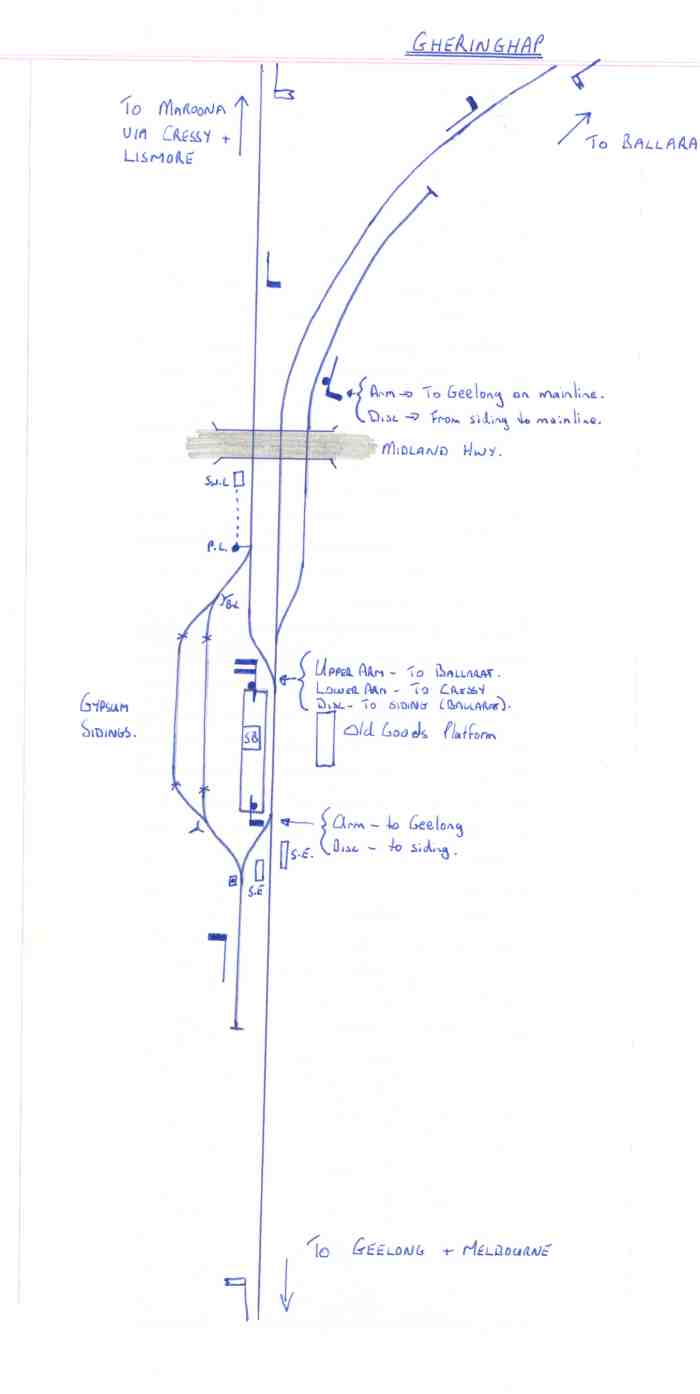 GHERINGHAP
TO MAROONA
VIA CRESSY +
LISMORE
TO BALLARA
Arm → To Geelong on mainline.
Disc → From siding to mainline.
MIDLAND HWY.
S.W.L
P.L.
BL
UPPER ARM - TO BALLARAT.
LOWER ARM - TO CRESSY
DISC - TO SIDING (BALLARAT).
GYPSUM
SIDINGS.
SB
Old Goods Platform
Arm - to Geelong
Disc - to siding.
S.E.
S.E
TO GEELONG + MELBOURNE